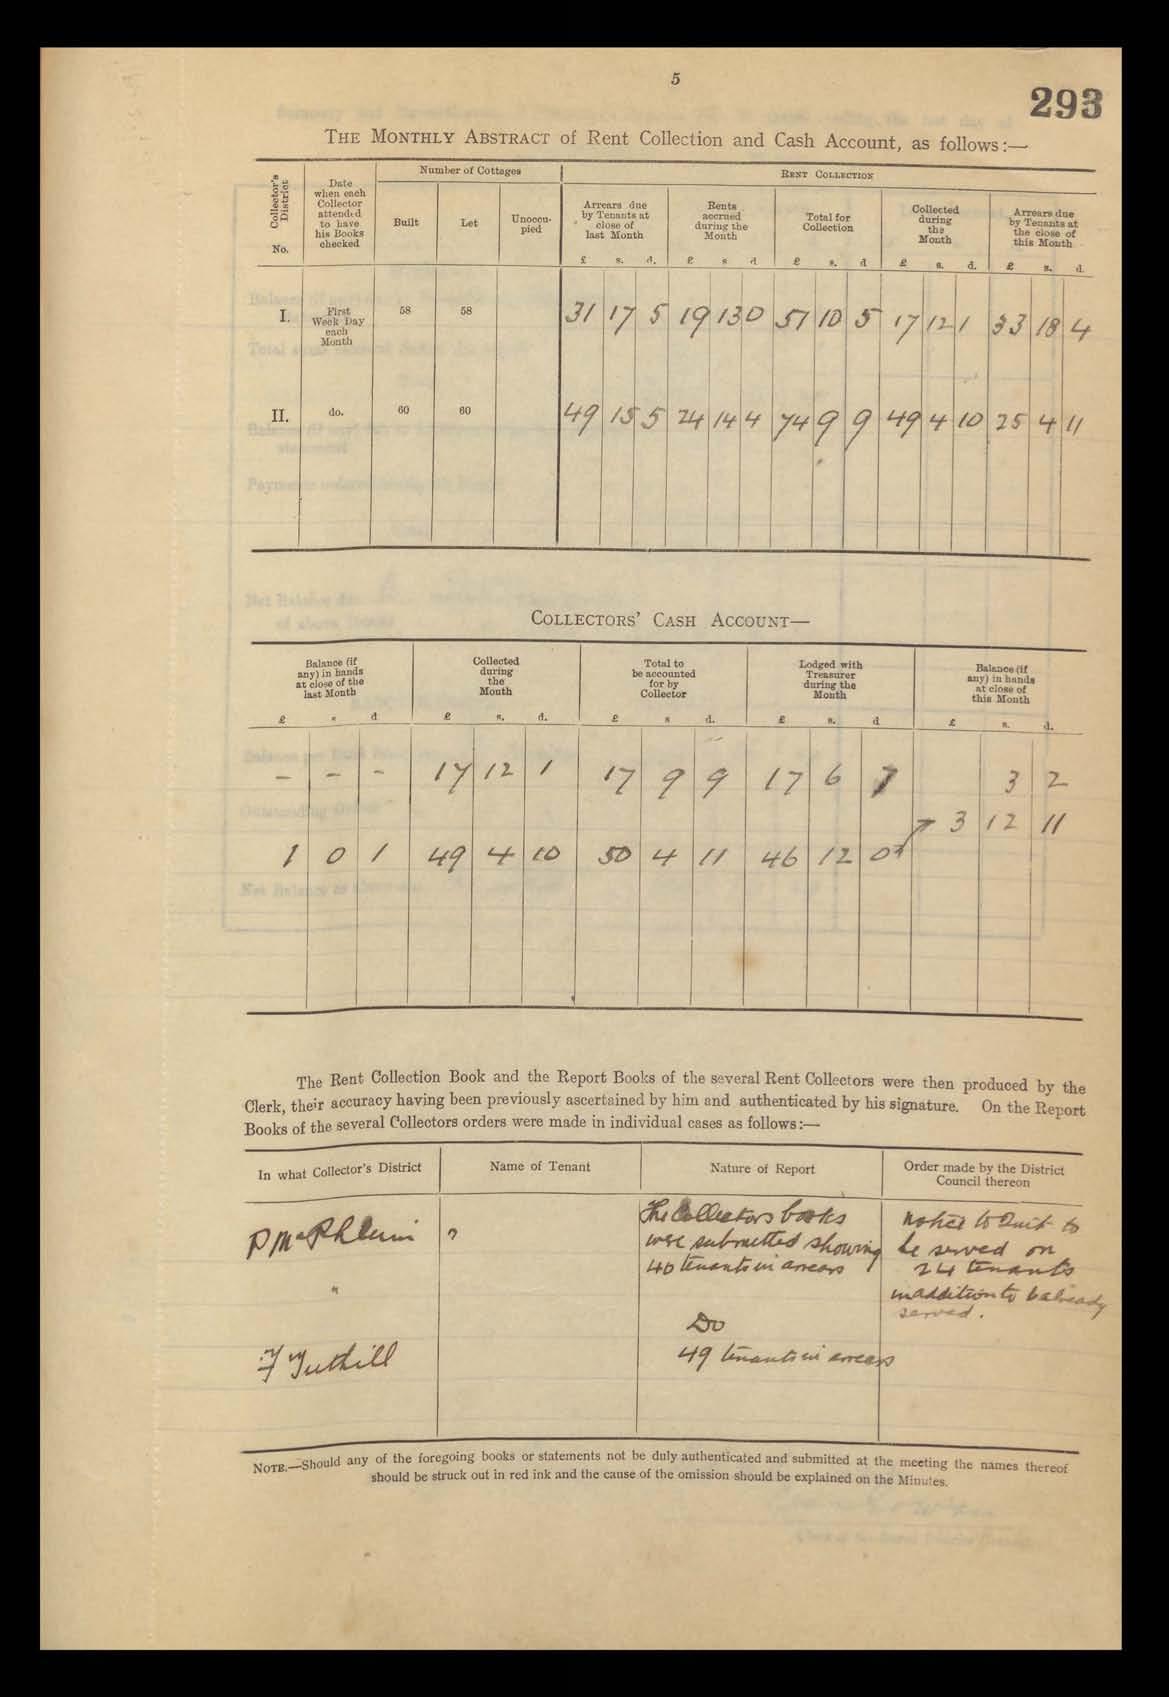 5
293
THE MONTHLY ABSTRACT of Rent Collection and Cash Account, as follows:—
Collector's District No.
Date when each Collector attended to have his Books checked
Number of Cottages
Built Let Unoccu-pied
RENT COLLECTION
Arrears due by Tenants at close of last Month
Rents accrued during the Month
Total for Collection
Collected during the Month
Arrears due by Tenants at the close of this Month
£ s. d. £ s d £ s. d £ s. d. £ s. d.
I. First Week Day each Month 58 58 31 17 5 19 13 0 51 10 5 17 12 1 33 18 4
II. do. 60 60 49 15 5 24 14 4 74 9 9 49 4 10 25 4 11
COLLECTORS' CASH ACCOUNT—
Balance (if any) in hands at close of the last Month
Collected during the Month
Total to be accounted for by Collector
Lodged with Treasurer during the Month
Balance (if any) in hands at close of this Month
£ s d £ s. d. £ s d. £ s. d £ s. d.
– – – 17 12 1 17 9 9 17 6 7 3 2
3 12 11
1 0 1 49 4 10 50 4 11 46 12 0
The Rent Collection Book and the Report Books of the several Rent Collectors were then produced by the
Clerk, their accuracy having been previously ascertained by him and authenticated by his signature. On the Report
Books of the several Collectors orders were made in individual cases as follows:—
In what Collector's District
Name of Tenant
Nature of Report
Order made by the District Council thereon
P
"
The Collectors books
were submitted showing
40 tenants in arrears
Notice to Quit to
be served on
24 tenants
in addition to 6 already
served.
F Tuthill
Do
49 tenants in arrears
NOTE.—Should any of the foregoing books or statements not be duly authenticated and submitted at the meeting the names thereof
should be struck out in red ink and the cause of the omission should be explained on the Minutes.